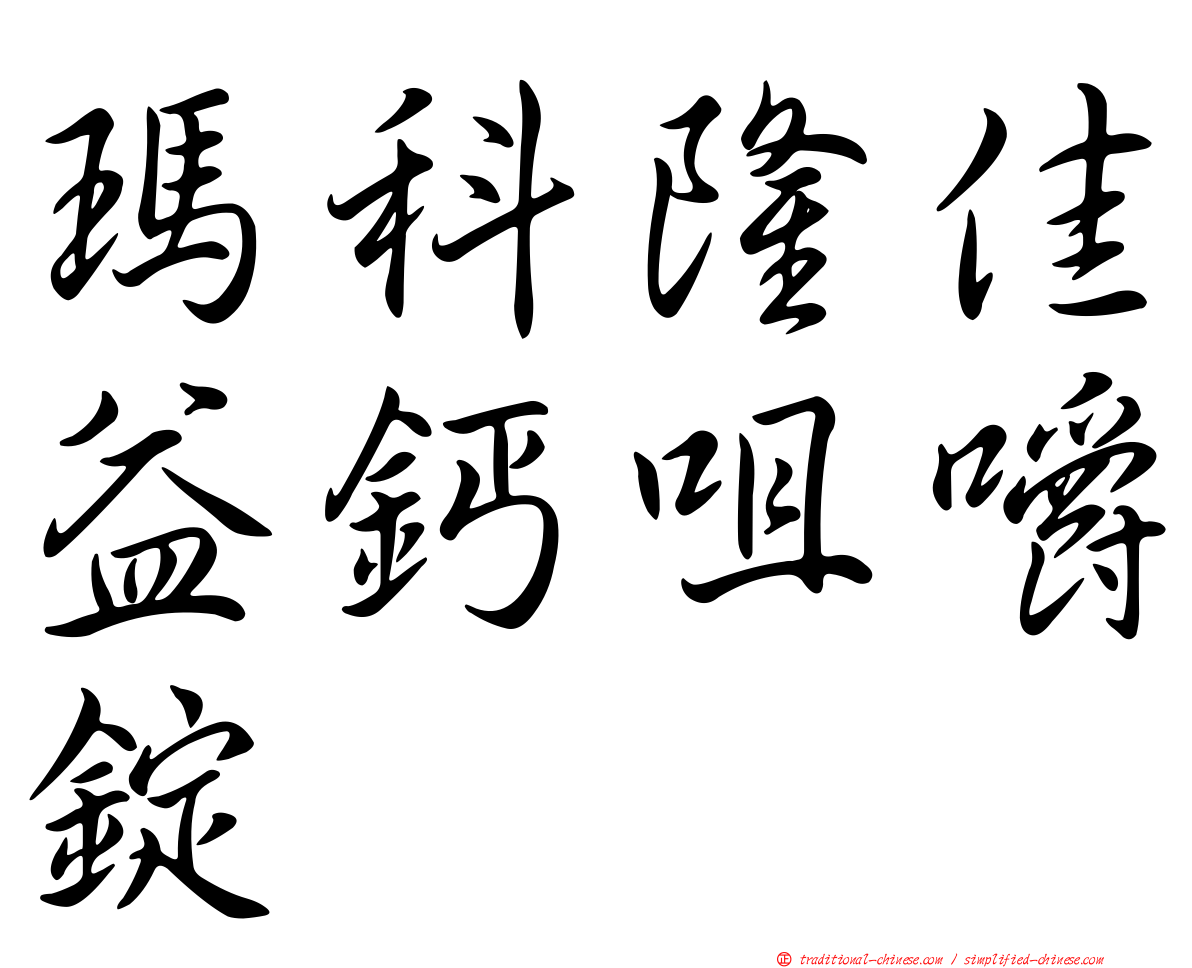 瑪科隆佳
益鈣咀嚼
錠
㊣ traditional-chinese.com / simplified-chinese.com